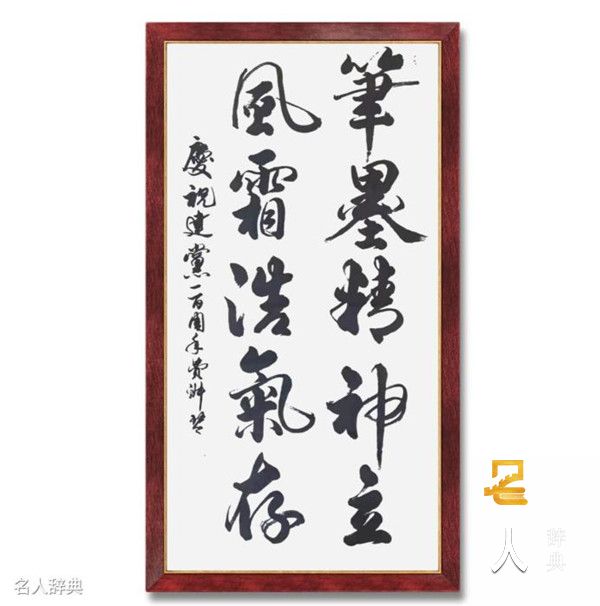 筆墨精神立
風霜浩氣存
慶祝建黨一百周年
名人辞典
名人辞典